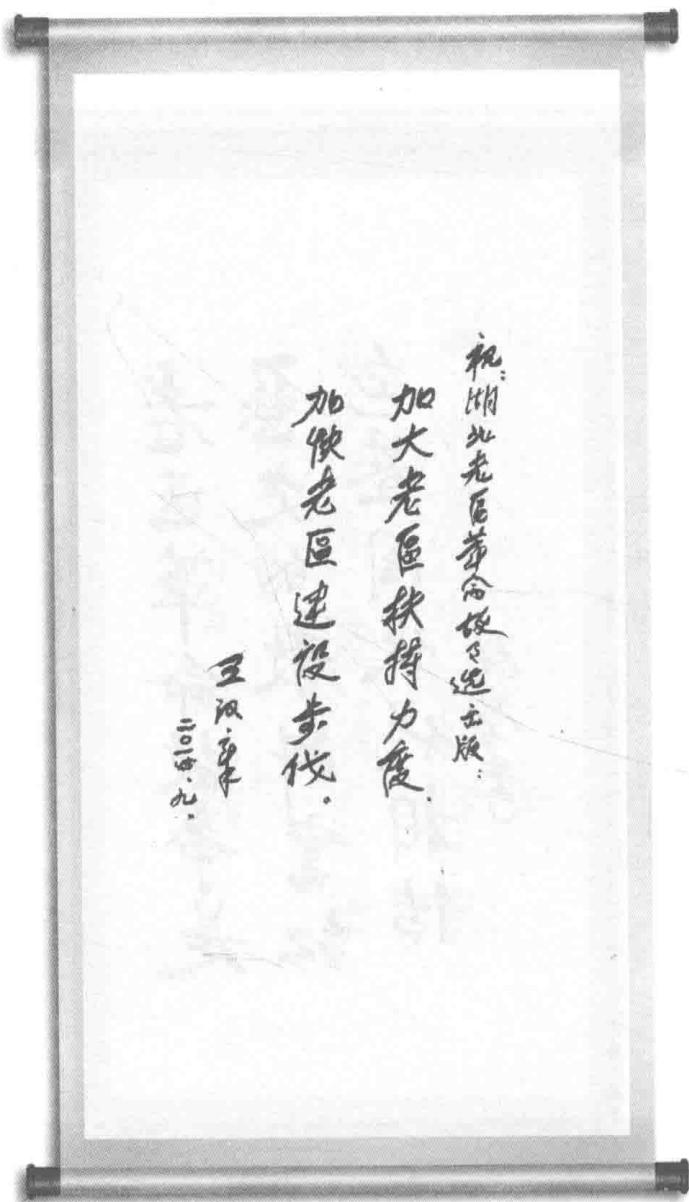 祝:湖北老区革命故事选出版:
加大老區扶持力度.
加快老區建设步伐。
王汉章
二〇一四.九.